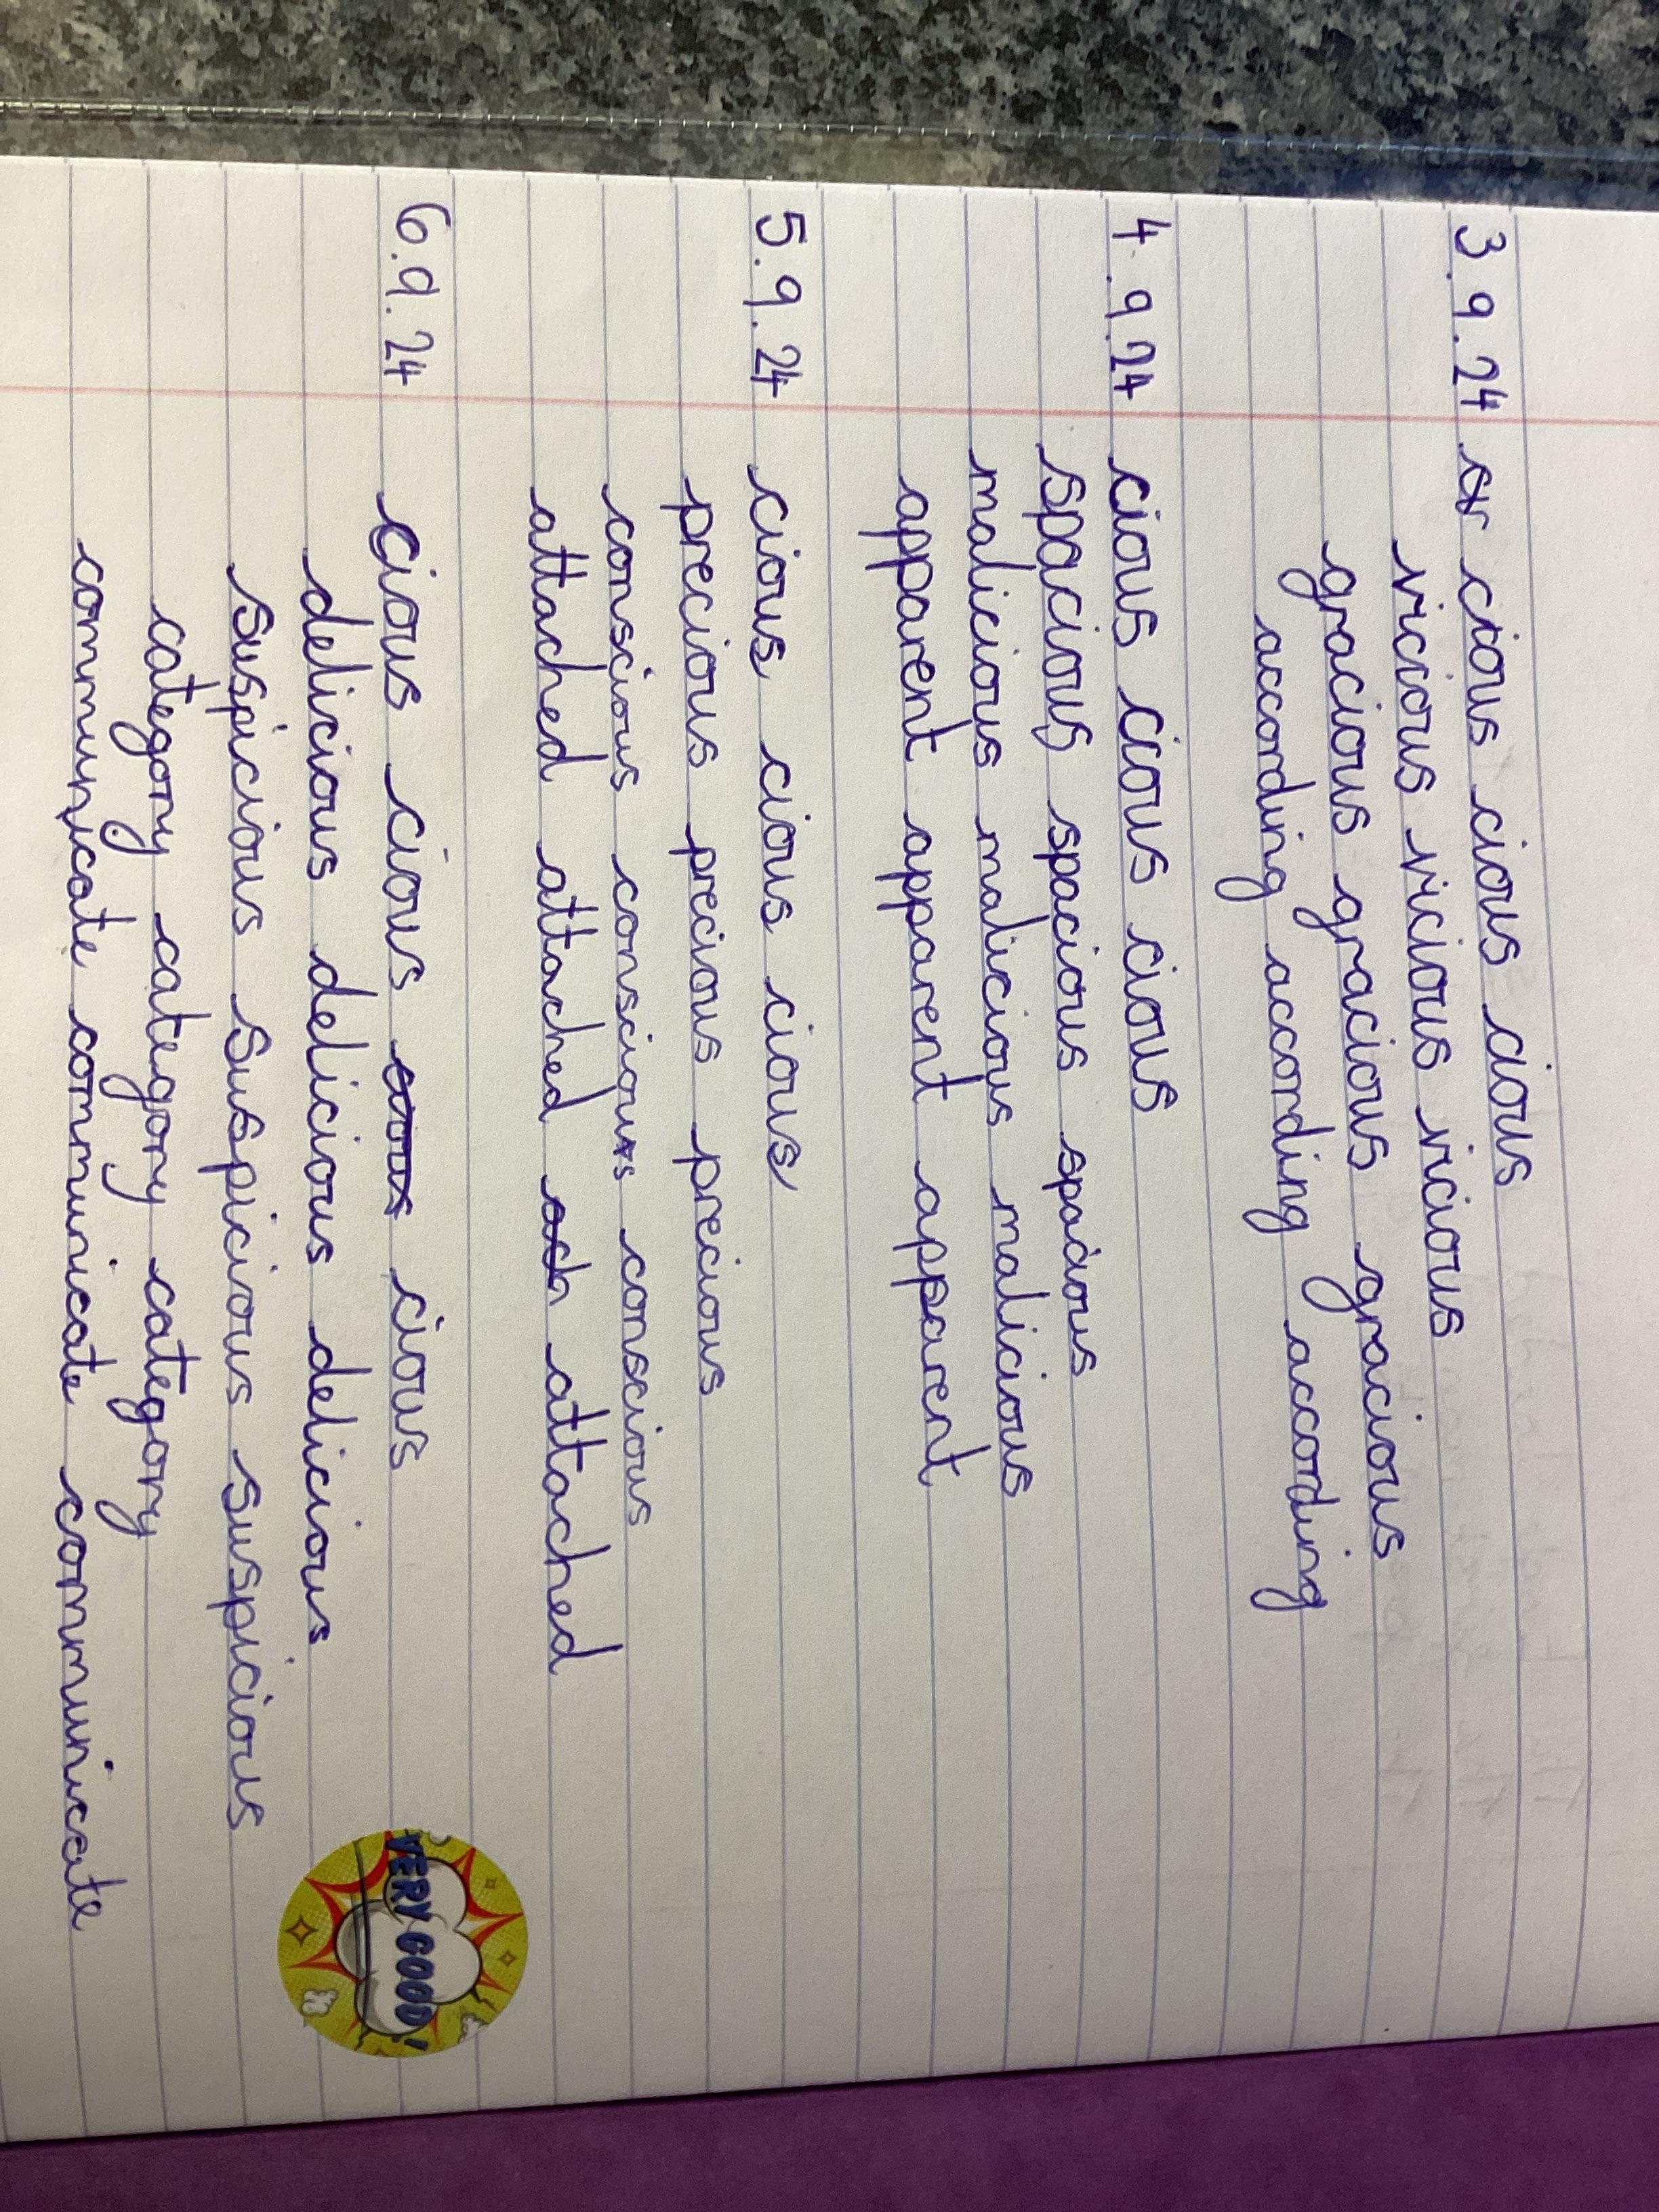 3.9.24 cious cious cious
vicious vicious vicious
gracious gracious gracious
according according according
4.9.24 cious cious cious
spacious spacious spacious
malicious malicious malicious
apparent apparent apparent
5.9.24 cious cious cious
precious precious precious
conscious conscious conscious
attached attached attached
6.9.24 cious cious cious
delicious delicious delicious
suspicious suspicious suspicious
category category category
communicate communicate communicate
VERY GOOD!